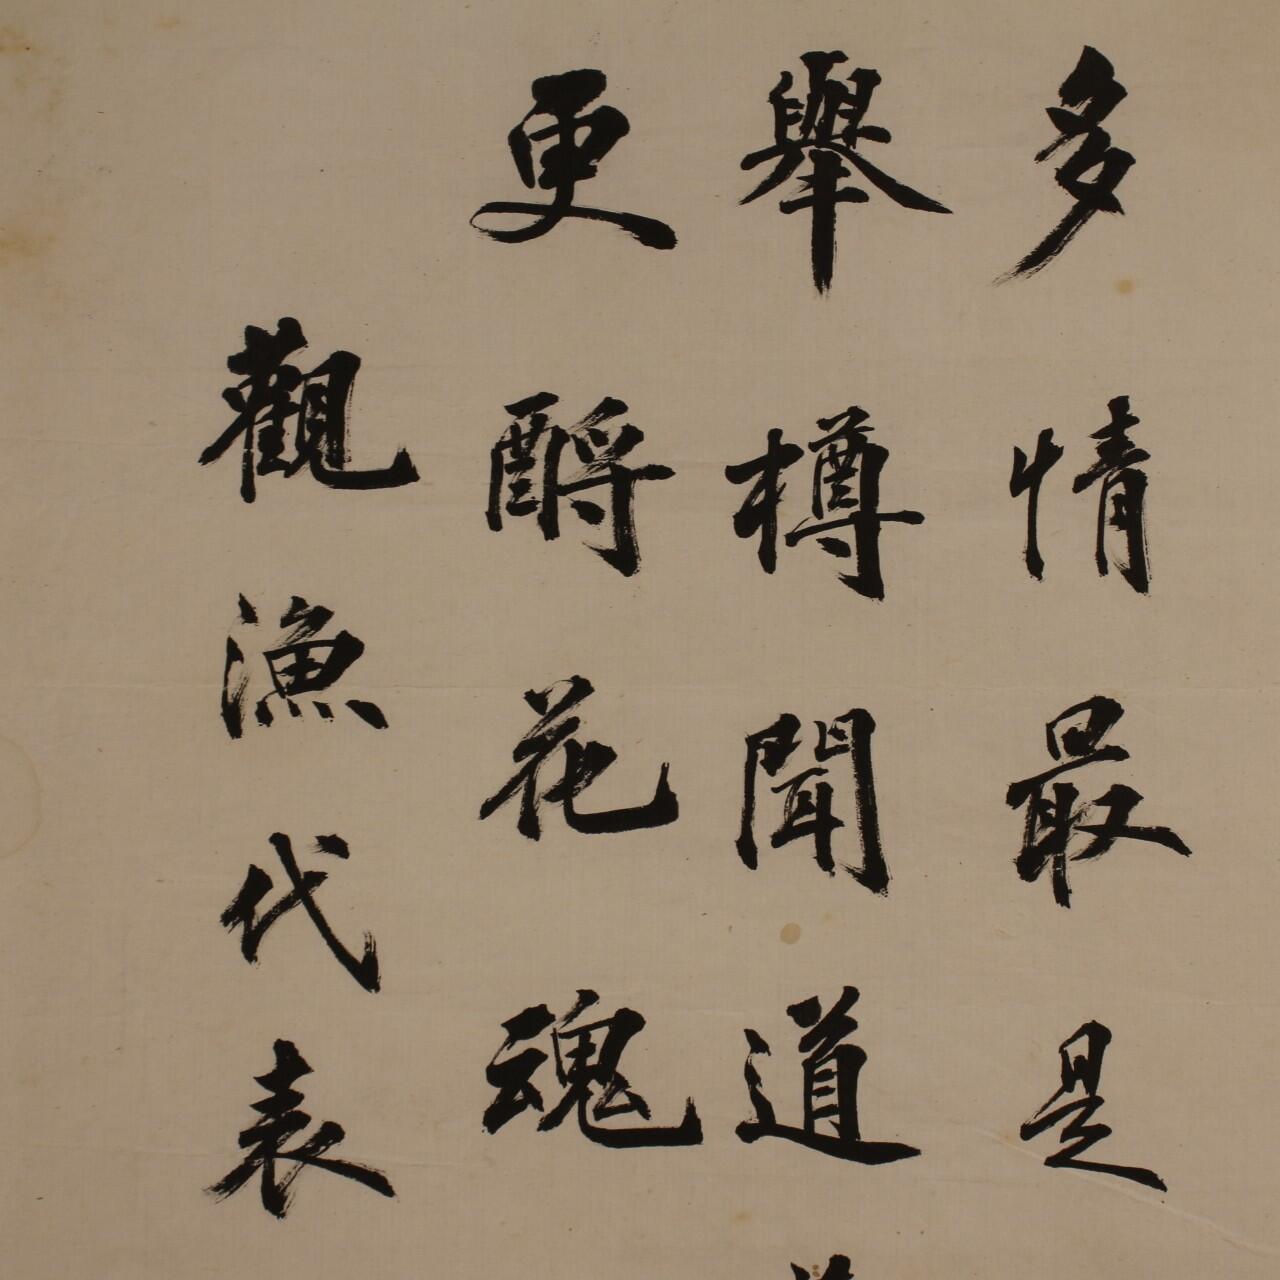 多情最是
舉樽聞道
更酹花魂
觀漁代表